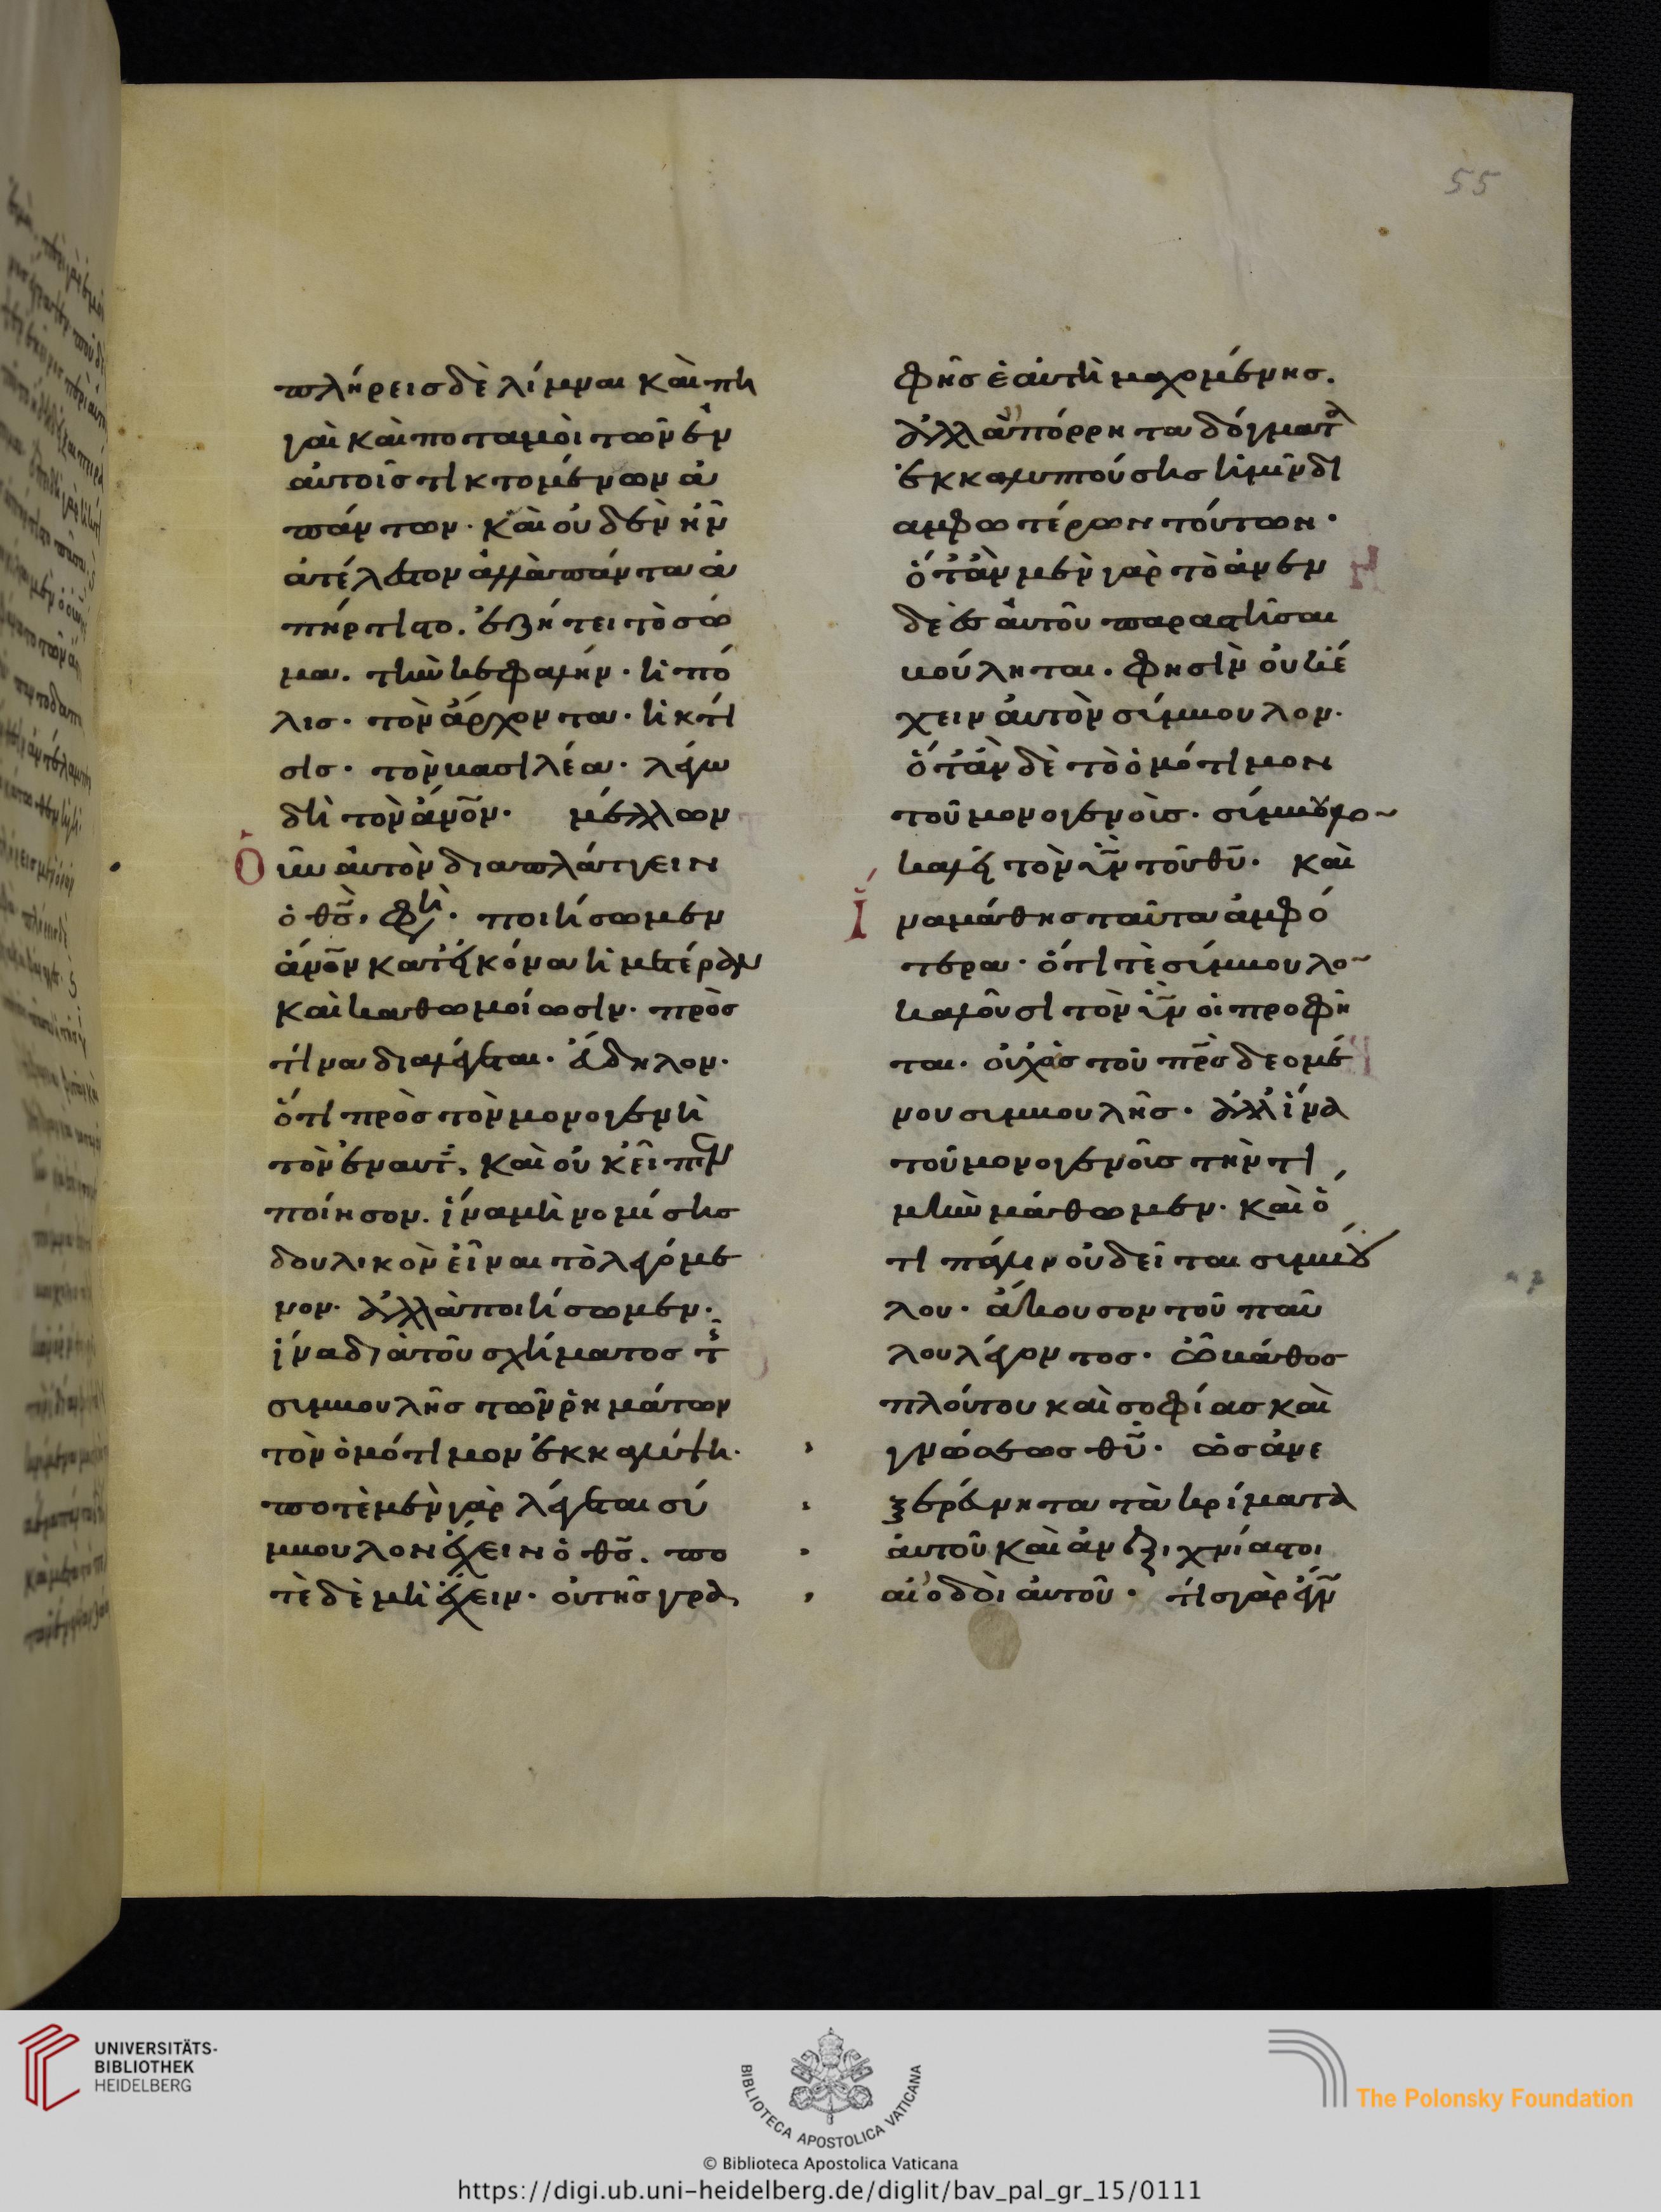 55
πλήρεισ δὲ λίμναι καὶ πη
γαὶ καὶ ποταμοὶ τῶν ἐν
αὐτοῖσ τικτομένων ἁ
πάντων· καὶ οὐδὲν ἦν
ἀτέλεστον ἀλλὰ πάντα ἀ
πήρτιστο. ἐζήτει τὸ σῶ
μα. τὴν κεφαλήν· ἡ πό
λισ· τὸν ἄρχοντα· ἡ κτί
σισ· τὸν βασιλέα· λέγω
δὴ τὸν ἄνον· μέλλων
Οὖν αὐτὸν διαπλάττειν
ὁ θσ, φη· ποιήσωμεν
ἄνον κατ᾽ εἰκόνα ἡμετέραν
καὶ καθ᾽ ὁμοίωσιν· πρὸσ
τίνα διαλέγεται. ἄδηλον·
ὅτι πρὸσ τὸν μονογενῆ
τὸν ἑναυτ, καὶ οὐκ εἶπεν
ποίησον. ἵνα μὴ νομίσησ
δουλικὸν εἶναι τὸ λεγόμε
νον· ἀλλὰ ποιήσωμεν·
ἵνα διὰ τοῦ σχήματοσ τῆσ
συμβουλῆσ τῶν ῥημάτων
τὸν ὁμότιμον ἐκκαλύψη·
ποτὲ μὲν γὰρ λέγεται σύ
μβουλον ἔχειν ὁ θσ. πο
τὲ δὲ μὴ ἔχειν· οὐ τῆσ γρα
φῆσ ἑαυτῆ μαχομένησ.
ἀλλ᾽ ἀπόρρητα δόγματα
ἐκκαλυπτούσησ ἡμῖν δι
αμφωτέρων τούτων·
ὅτ᾽ ἂν μὲν γὰρ τὸ ἀνεν
δεὲσ αὐτοῦ παραστῆσαι
βούληται. φησὶν οὐκ ἔ
χειν αὐτὸν σύμβουλον·
ὅτ᾽ ἂν δὲ τὸ ὁμότιμον
τοῦ μονογενοῦσ· σύμβουλο
καλεῖ τὸν υν τοῦ θυ· καὶ
Ἵνα μάθησ ταῦτα ἀμφό
τερα· ὅτι τὲ σύμβουλο
καλοῦσι τὸν υν οἱ προφῆ
ται. οὐχ ὡσ τοῦ πρσ δεομέ
νου συμβουλῆσ· ἀλλ᾽ ἵνα
τοῦ μονογενοῦσ τὴν τι
μὴν μάθωμεν· καὶ ὅ
τι πάλιν οὐ δεῖται συμβού
λου· ἄκουσον τοῦ παύ
λου λέγοντοσ· ὢ βάθοσ
πλούτου καὶ σοφίασ καὶ
γνώσεωσ θυ· ὡσ ἀνε
ξερεύνητα τὰ κρίματα
αὐτοῦ καὶ ἀνεξιχνίαστοι
αἱ ὁδοὶ αὐτοῦ· τίσ γὰρ ἔγν
UNIVERSITÄTS-
BIBLIOTHEK
HEIDELBERG
BIBLIOTECA APOSTOLICA VATICANA
The Polonsky Foundation
© Biblioteca Apostolica Vaticana
https://digi.ub.uni-heidelberg.de/diglit/bav_pal_gr_15/0111